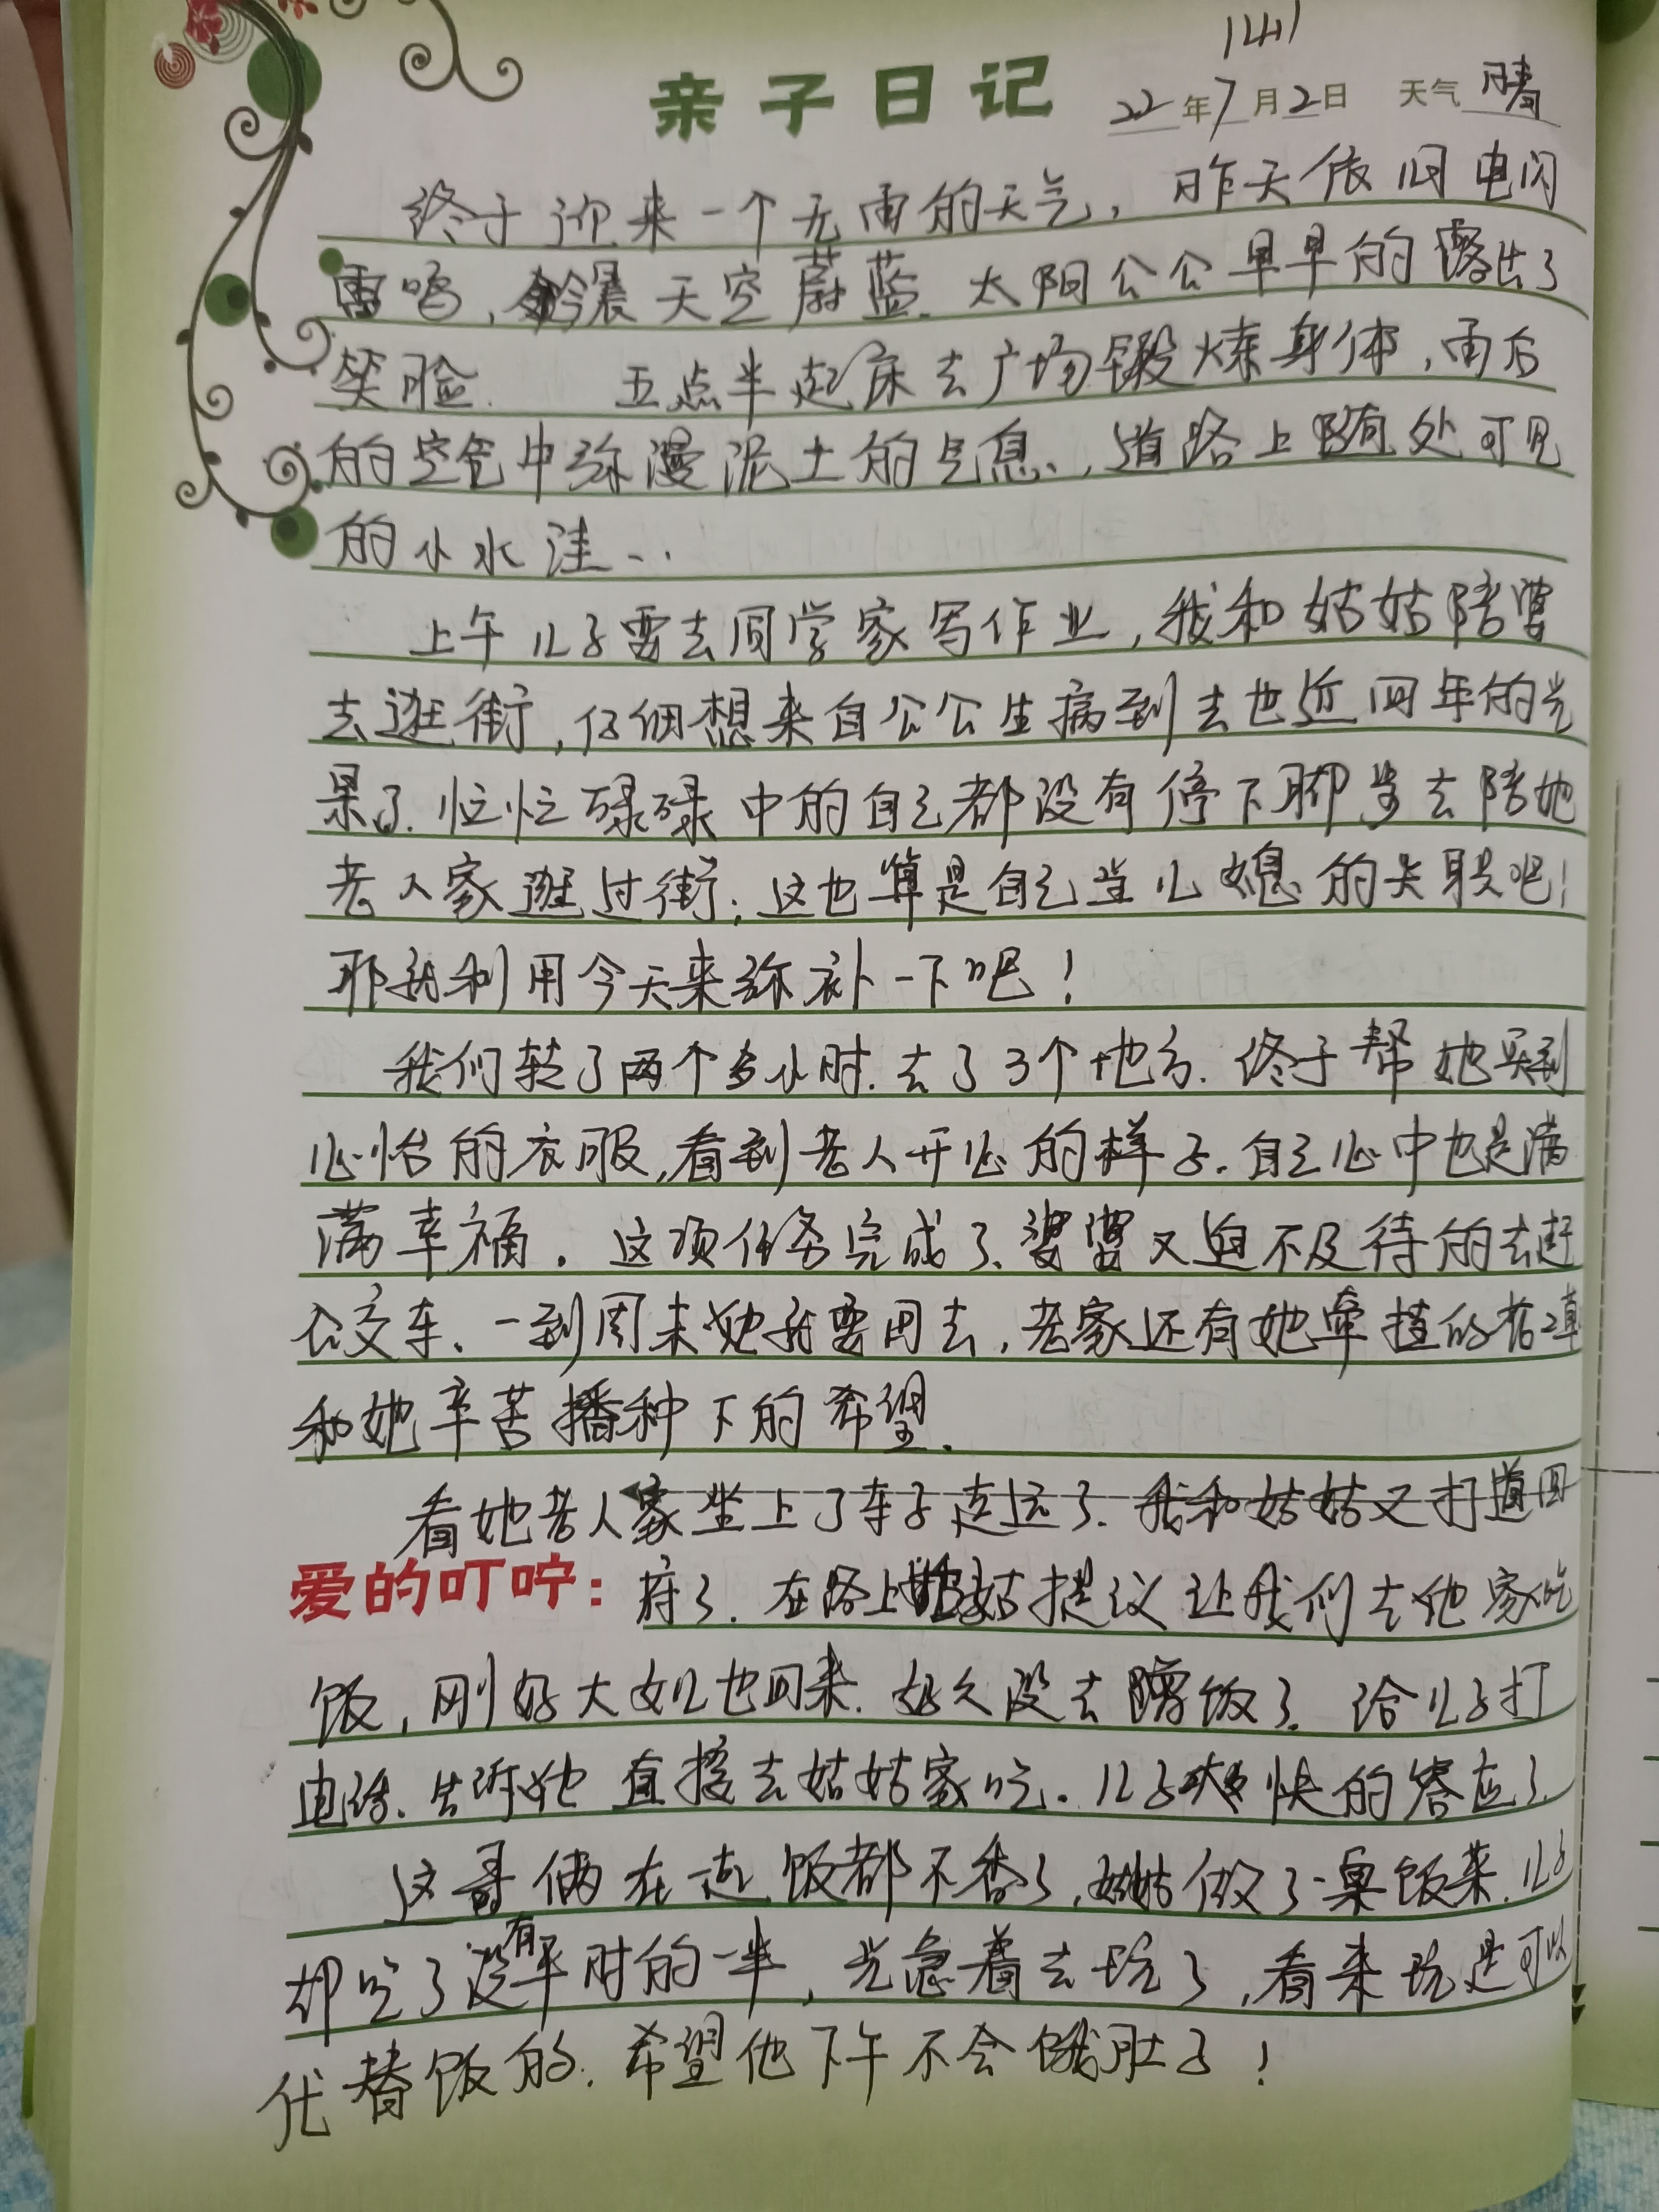 1441
亲子日记 22年7月2日 天气 晴
终于迎来一个无雨的天气，昨天依旧电闪
雷鸣，今晨天空蔚蓝.太阳公公早早的露出了
笑脸. 五点半起床去广场锻炼身体，雨后
的空气中弥漫泥土的气息、，道路上随处可见
的小水洼...
上午儿子要去同学家写作业，我和姑姑陪婆
去逛街，仔细想来自公公生病到去世近四年的光
景了.忙忙碌碌中的自己都没有停下脚步去陪她
老人家逛过街；这也算是自己当儿媳的失职吧！
那就利用今天来弥补一下吧！
我们转了两个多小时.去了3个地方.终于帮她买到
心怡的衣服，看到老人开心的样子.自己心中也是满
满幸福。这项任务完成了、婆婆又迫不及待的去赶
公交车、一到周末她就要回去，老家还有她牵挂的
和她辛苦播种下的希望.
看她老人家坐上了车子走远了.我和姑姑又打道回
爱的叮咛：府了.在路上姑姑提议让我们去他家吃
饭，刚好大女儿也回来.好久没去蹭饭了.给儿子打
电话.告诉她直接去姑姑家吃。儿子爽快的答应了.
这哥俩在一起.饭都不香了，姑姑做了一桌饭菜.儿子
却吃了没有平时的一半，光急着去玩了，看来玩是可以
代替饭的.希望他下午不会饿肚子！